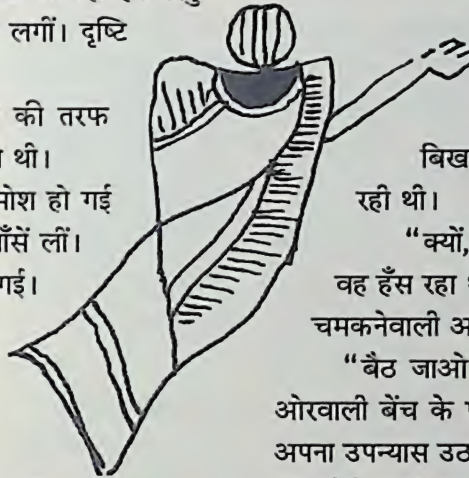 लगीं। दृष्टि
की तरफ
थी।
हो गई
लीं।
गई।
रही थी।
“क्यों,
वह हँस रहा
चमकनेवाली
“बैठ जाओ
ओरवाली बेंच के
अपना उपन्यास